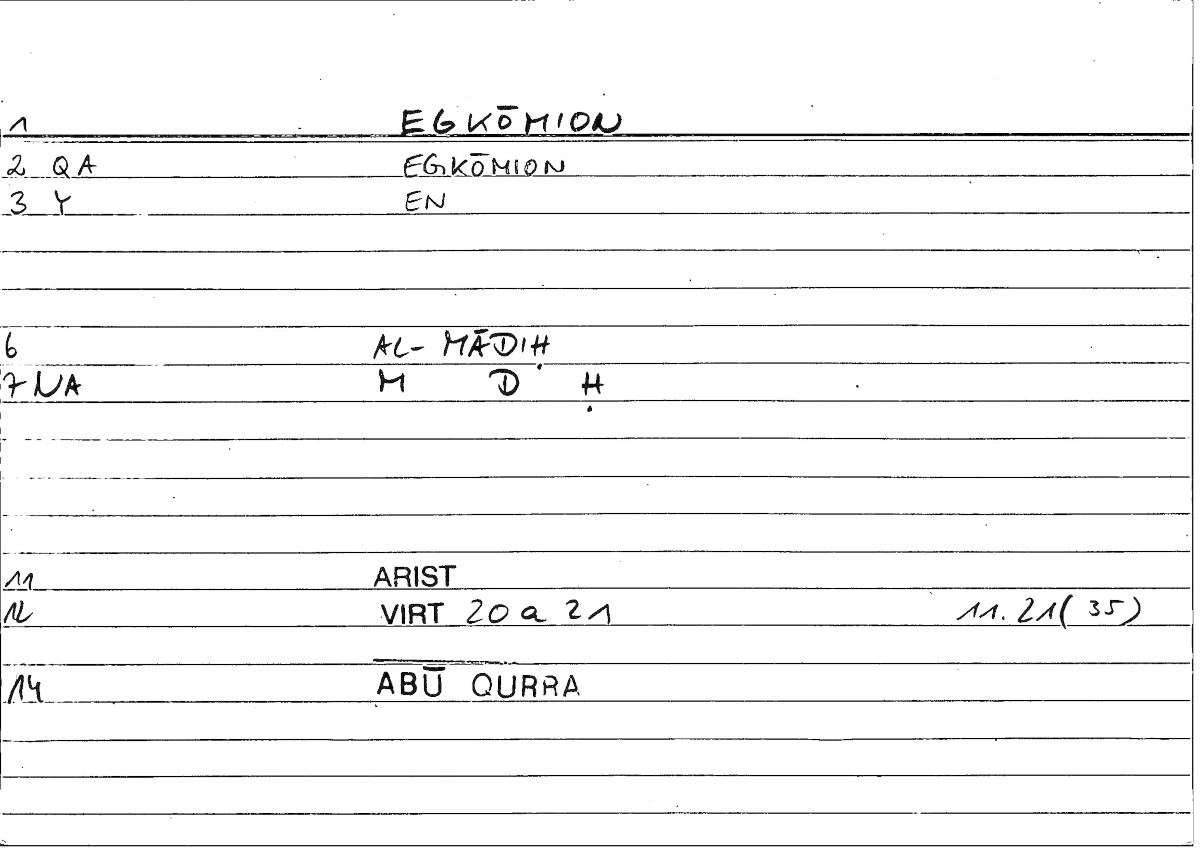 1 EGKŌMION
2 QA EGKŌMION
3 Y EN
6 AL- MĀDIḤ
7 NA M D Ḥ
11 ARIST
12 VIRT 20 a 21 11.21(35)
14 ABŪ QURRA